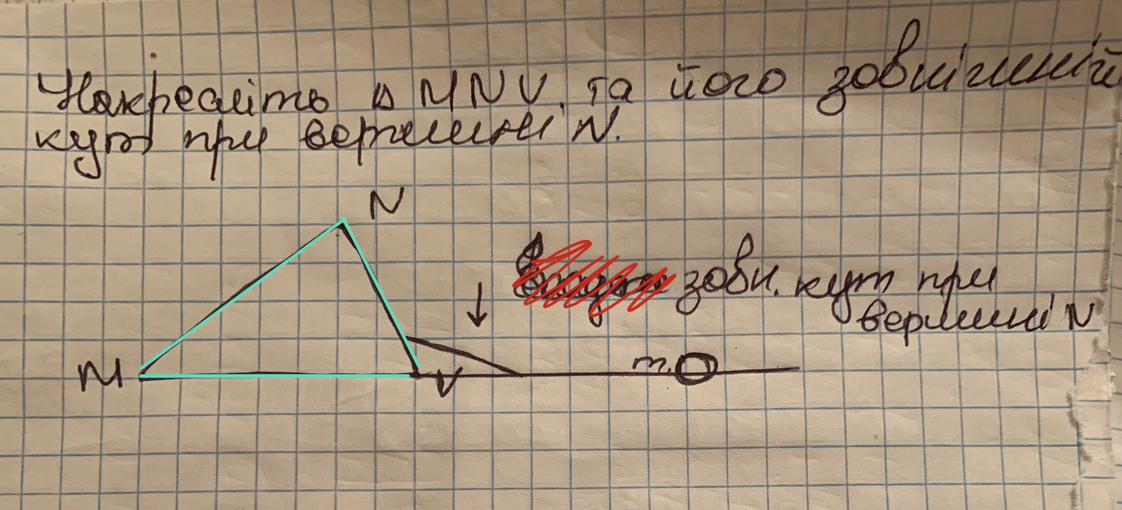 Накресліть △ MNV, та його зовнішній
кут при вершині N.
N
зовн. кут при
вершині N
M
V
т.О